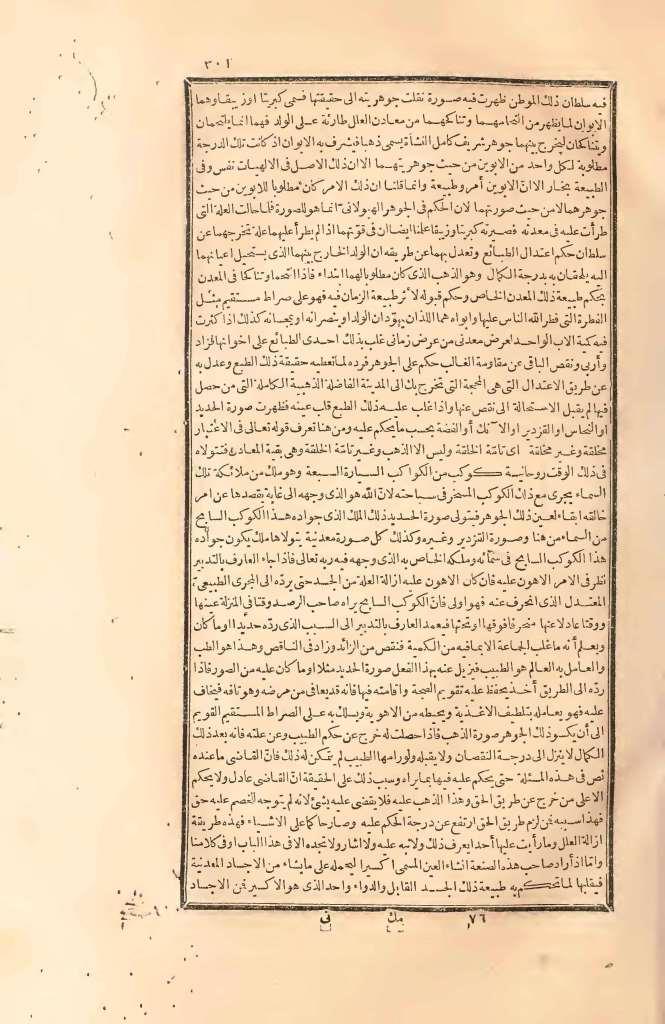 ٣٠١
فيه سلطان ذلك الموطن ظهرت فيه صورة نقلت جوهريته الى حقيقتها فسمى كبريتا أو زيبقا وهما
الابوان لما يظهر من التحامهما وتناكحهما من معادن العلل طارئة على الولد فهما انما يلتحمان
ويتناكحان ليخرج بينهما جوهر شريف كامل النشأة يسمى ذهبا فيشرف به الابوان اذ كانت تلك الدرجة
مطلوبة لكل واحد من الابوين من حيث جوهريتهما الا ان ذلك الاصل فى الالهيات نفس وفى
الطبيعة بخار الا انّ الابوين أمر وطبيعة وانما قلنا ان ذلك الامر كان مطلوبا للابوين من حيث
جوهرهما لا من حيث صورتهما لان الحكم فى الجوهر الهيولانىّ انما هو للصورة فلما حالت العلة التى
طرأت عليه فى معدنه فصيرته كبريتا وزيبقا علمنا ايضا ان فى قوتهما اذا لم يطرأ عليهما علة تخرجهما عن
سلطان حكم اعتدال الطبائع وتعدل بهما عن طريقه ان الولد الخارج بينهما الذى يستحيل اعيانهما
اليه يلحقان به بدرجة الكمال وهو الذهب الذى كان مطلوبا لهما ابتداء فاذا التحما وتناكحا فى المعدن
بحكم طبيعة ذلك المعدن الخاص وحكم قبوله لأثر طبيعة الزمان فيه فهو على صراط مستقيم مثل
الفطرة التى فطر الله الناس عليها وابواه هما اللذان يهوّدان الولد او ينصرانه او يمجسانه كذلك اذا كثرت
فيه كمية الاب الواحد لعرض معدنى من عرض زمانى غلب بذلك احدى الطبائع على اخواتها فزاد
وأربى ونقص الباقى عن مقاومة الغالب حكم على الجوهر فرده لما تعطيه حقيقة ذلك الطبع وعدل به
عن طريق الاعتدال التى هى المحجة التى تخرج بك الى المدينة الفاضلة الذهبية الكاملة التى من حصل
فيها لم يقبل الاستحالة الى نقص عنها واذا غلب عليه ذلك الطبع قلب عينه فظهرت صورة الحديد
او النحاس او القزدير او الآنك أو الفضة بحسب ما يحكم عليه ومن هنا تعرف قوله تعالى فى الاعتبار
مخلقة وغير مخلقة اى تامّة الخلقة وليس الا الذهب وغير تامّة الخلقة وهى بقية المعادن فتتولاه
فى ذلك الوقت روحانية كوكب من الكواكب السيارة السبعة وهو ملك من ملائكة تلك
السماء يجرى مع ذلك الكوكب المسخر فى سباحته لانّ الله هو الذى وجهه الى غاية يقصدها عن امر
خالقه ابقاء لعين ذلك الجوهر فيتولى صورة الحديد ذلك الملك الذى جواده هذا الكوكب السابح
من السماء من هنا وصورة القزدير وغيره وكذلك كل صورة معدنية يتولاها ملك يكون جواده
هذا الكوكب السابح فى سمائه وفلكه الخاص به الذى وجهه فيه ربه تعالى فاذا جاء العارف بالتدبير
نظر فى الامر الاهون عليه فان كان الاهون عليه ازالة العلة من الجسد حتى يردّه الى المجرى الطبيعىّ
المعتدل الذى انحرف عنه فهو اولى فانّ الكوكب السابح يراه صاحب الرصد وقتا فى المنزلة عينها
ووقتا عادلا عنها منحرفا فوقها او تحتها فيعمد العارف بالتدبير الى السبب الذى ردّه حديدا او ما كان
ويعلم أنه ما غلب الجماعة الا بما فيه من الكمية فنقص من الزائد وزاد فى الناقص وهذا هو الطب
والعامل به العالم هو الطبيب فيزيل عنه بهذا الفعل صورة الحديد مثلا او ما كان عليه من الصور فاذا
ردّه الى الطريق أخذ يحفظ عليه تقويم الصحة واقامته فيها فانه قد يعافى من مرضه وهو ناقه فيخاف
عليه فهو يعامله بتلطيف الاغذية ويحيطه من الاهوية ويسلك به على الصراط المستقيم القويم
الى أن يكسو ذلك الجوهر صورة الذهب فاذا احصلت له خرج عن حكم الطبيب وعن علته فانه بعد ذلك
الكمال لا ينزل الى درجة النقصان ولا يقبله ولو رامها الطبيب لم يتمكن له ذلك فانّ القاضى ما عنده
نص فى هذه المسئلة حتى يحكم عليه فيها بما يراه وسبب ذلك على الحقيقة انّ القاضى عادل ولا يحكم
الا على من خرج عن طريق الحق وهذا الذهب عليه فلا يقضى عليه بشئ لانه لم يتوجه للخصم عليه حق
فهذا سببه فمن لزم طريق الحق ارتفع عن درجة الحكم عليه وصار حاكما على الاشياء فهذه طريقة
ازالة العلل وما رأيت عليها أحدا يعرف ذلك ولا نبه عليه ولا اشار ولا تجده الا فى هذا الباب او فى كلامنا
وامّا اذا أراد صاحب هذه الصنعة انشاء العين المسمى اكسيرا ليحمله على ما يشاء من الاجساد المعدنية
فيقلبها لما تحكم به طبيعة ذلك الجسد القابل والدواء واحد الذى هو الاكسير فمن الاجساد
٧٦ مك فى